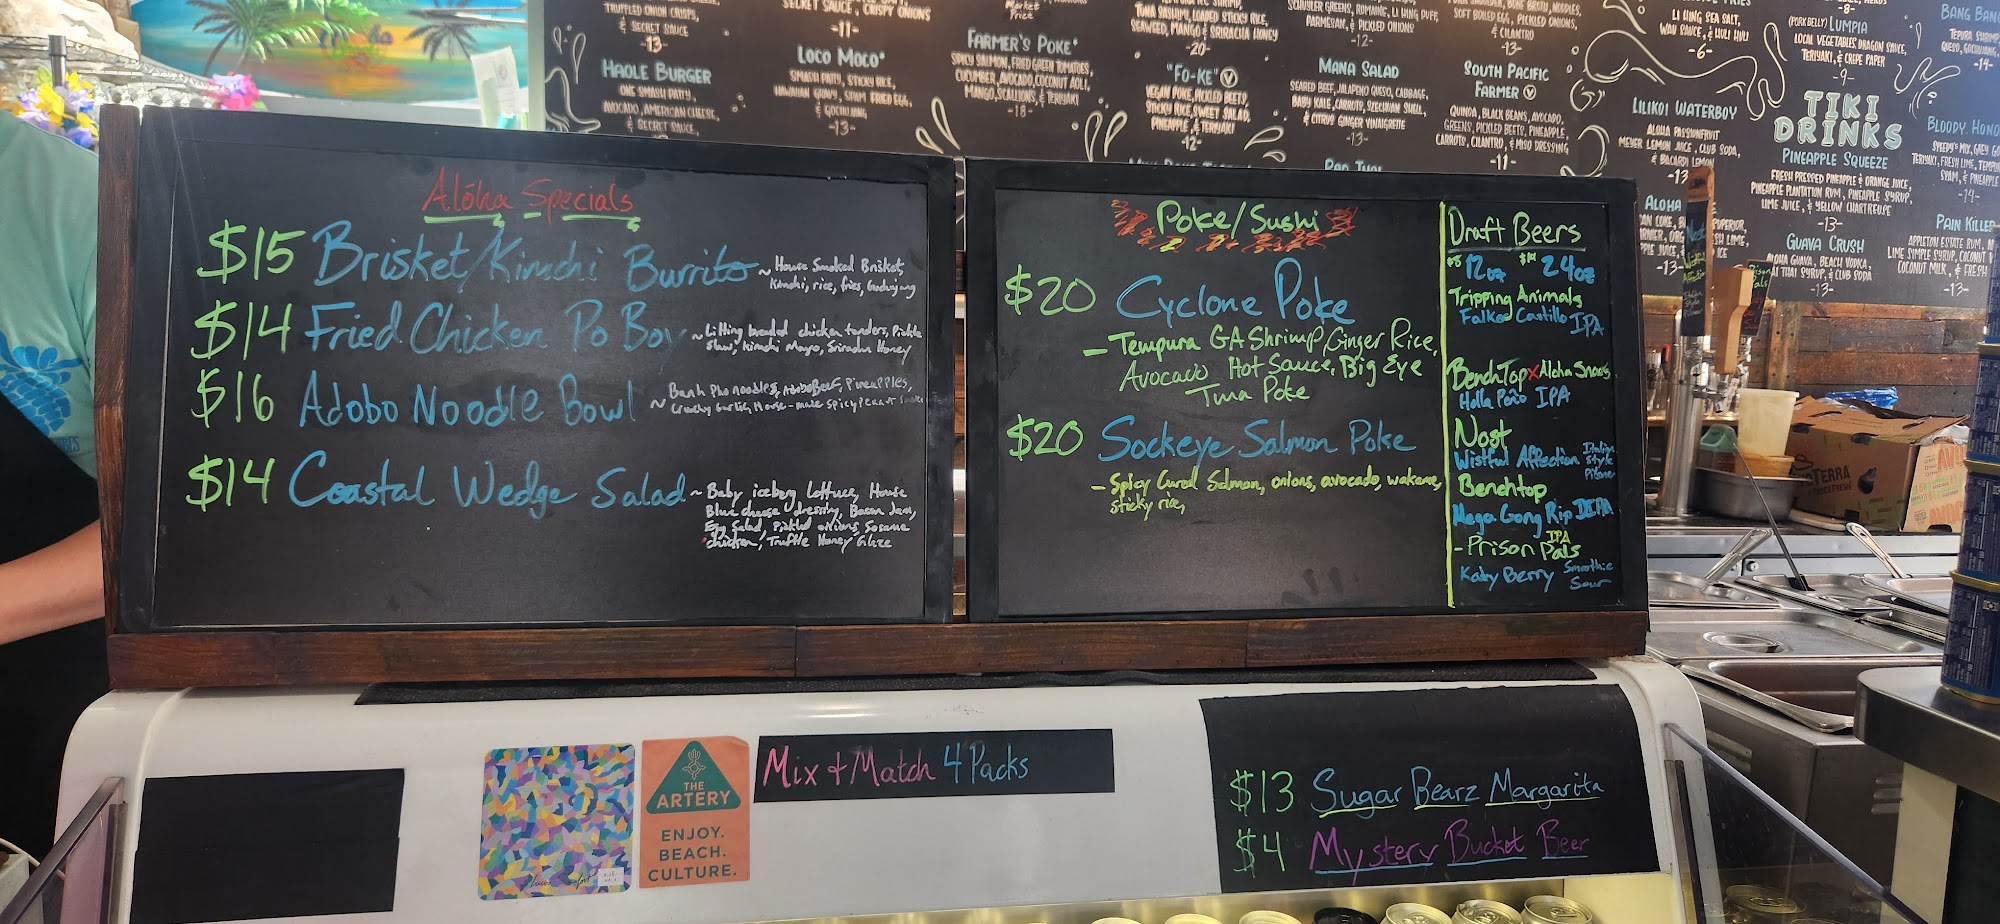 Alōha Specials
$15 Brisket/Kimchi Burrito ~ House Smoked Brisket,
Kimchi, rice, fries,
$14 Fried Chicken Po Boy ~ breaded chicken tenders, Pickle
Slaw, Kimchi Mayo, Sriracha Honey
$16 Adobo Noodle Bowl ~ Banh Pho noodles, Adobo Beef, Pineapples,
Crunchy Garlic, House-made Spicy Peanut
$14 Coastal Wedge Salad ~ Baby iceberg lettuce, House
Blue cheese dressing, Bacon Jam,
Egg Salad, Pickled onions, Sesame
chicken, Truffle Honey Glaze
Poke/Sushi
$20 Cyclone Poke
- Tempura GA Shrimp, Ginger Rice,
Avocado Hot Sauce, Big Eye
Tuna Poke
$20 Sockeye Salmon Poke
- Spicy Cured Salmon, onions, avocado, wakame,
sticky rice,
Draft Beers
$8 12oz $14 24oz
Tripping Animals
Falkor Castillo IPA
BenchTop x Aloha Snacks
Holla Paño IPA
Nost
Wistful Affection Italian
Style
Pilsner
Benchtop
Mega Gong Rip DIPA
IPA
- Prison Pals
Katy Berry Smoothie
Sour
Mix + Match 4 Packs
$13 Sugar Bearz Margarita
$4 Mystery Bucket Beer
THE
ARTERY
ENJOY.
BEACH.
CULTURE.
TRUFFLED ONION CRISPS,
& SECRET SAUCE
-13-
HAOLE BURGER
ONE SMASH PATTY,
AVOCADO, AMERICAN CHEESE,
& SECRET SAUCE
SECRET SAUCE, CRISPY ONIONS
-11-
LOCO MOCO*
SMASH PATTY, STICKY RICE,
HAWAIIAN GRAVY, SPAM FRIED EGG,
& GOCHUJANG
-13-
Market
Price
FARMER'S POKE*
SPICY SALMON, FRIED GREEN TOMATOES,
CUCUMBER, AVOCADO, COCONUT AOLI,
MANGO, SCALLIONS, & TERIYAKI
-18-
TUNA SASHIMI, LOADED STICKY RICE,
SEAWEED, MANGO & SRIRACHA HONEY
-20
"FO-KE" V
VEGAN POKE, PICKED BEETS,
STICKY RICE, SWEET SALAD,
PINEAPPLE, & TERIYAKI
-12-
SCHUYLER GREENS, ROMAINE, LI HING PUFF,
PARMESAN, & PICKLED ONIONS
-12-
MANA SALAD
SEARED BEEF, JALAPENO QUESO, CABBAGE,
BABY KALE, CARROTS, SZECHUAN SHELL,
& CITRUS GINGER VINAIGRETTE
-13-
PAD THAI
SOFT BOILED EGG, PICKLED ONIONS,
& CILANTRO
-13-
SOUTH PACIFIC
FARMER V
QUINOA, BLACK BEANS, AVOCADO,
GREENS, PICKLED BEETS, PINEAPPLE,
CARROTS, CILANTRO, & MISO DRESSING
-11-
LI HING SEA SALT,
WAU SAUCE, & HULI HULI
-6-
LILIKOI WATERBOY
ALOHA PASSIONFRUIT
MEYER LEMON JUICE, CLUB SODA,
& BACARDI LEMON
-13
ALOHA
-13-
-8-
(PORK BELLY) LUMPIA
LOCAL VEGETABLES, DRAGON SAUCE,
TERIYAKI, & CREPE PAPER
-9-
TIKI
DRINKS
PINEAPPLE SQUEEZE
FRESH PRESSED PINEAPPLE & ORANGE JUICE,
PINEAPPLE PLANTATION RUM, PINEAPPLE SYRUP,
LIME JUICE, & YELLOW CHARTREUSE
-13-
GUAVA CRUSH
ALOHA GUAVA, BEACH VODKA,
THAI SYRUP, & CLUB SODA
-13-
BANG BANG
-14-
BLOODY HONO
-14-
PAIN KILLER
APPLETON ESTATE RUM,
LIME SIMPLE SYRUP, COCONUT
COCONUT MILK, & FRESH
-13-